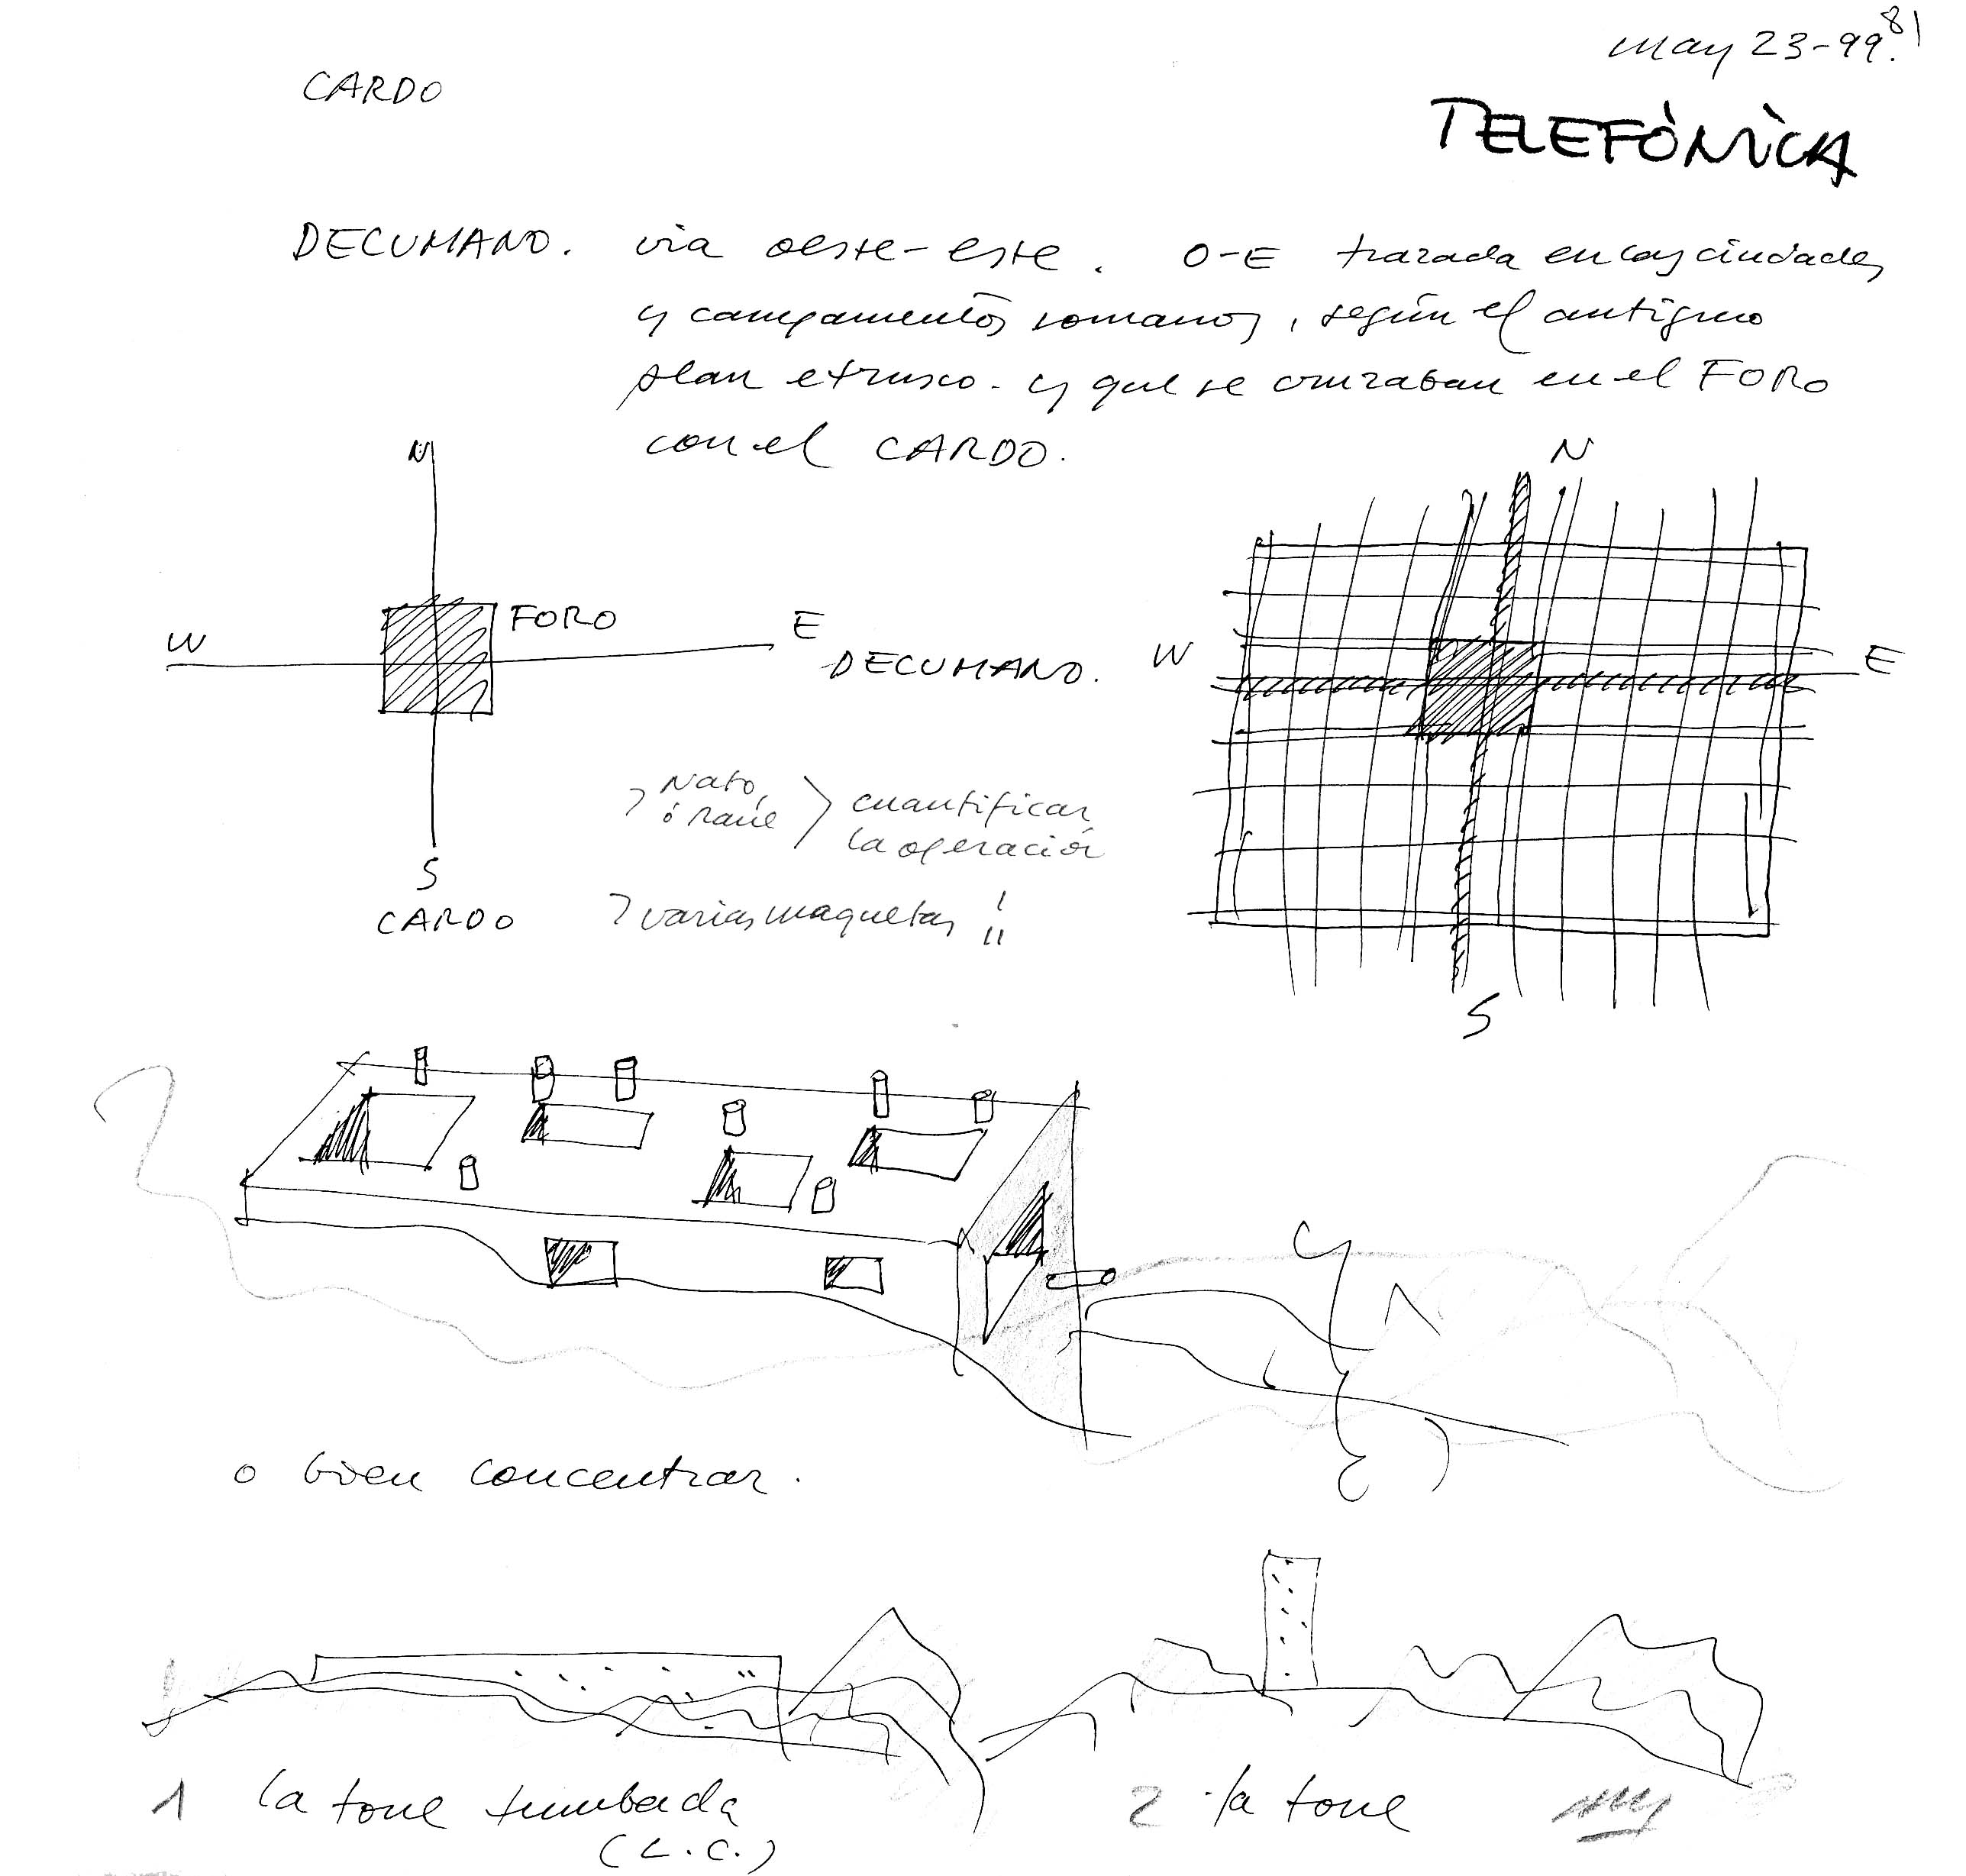 may 23-99.
81
CARDO
TELEFÒNÌCA
DECUMANO. via oeste-este. O-E trazada en las ciudades
y campamentos romanos, según el antiguo
plan etrusco. y que se cruzaban en el FORO
con el CARDO.
N
N
FORO
W
E
DECUMANO.
W
E
Nato,
cuantificar
la operación
S
CARDO
varias maquetas
S
o bien concentrar.
1 la torre tumbada
(L.C.)
2 la torre